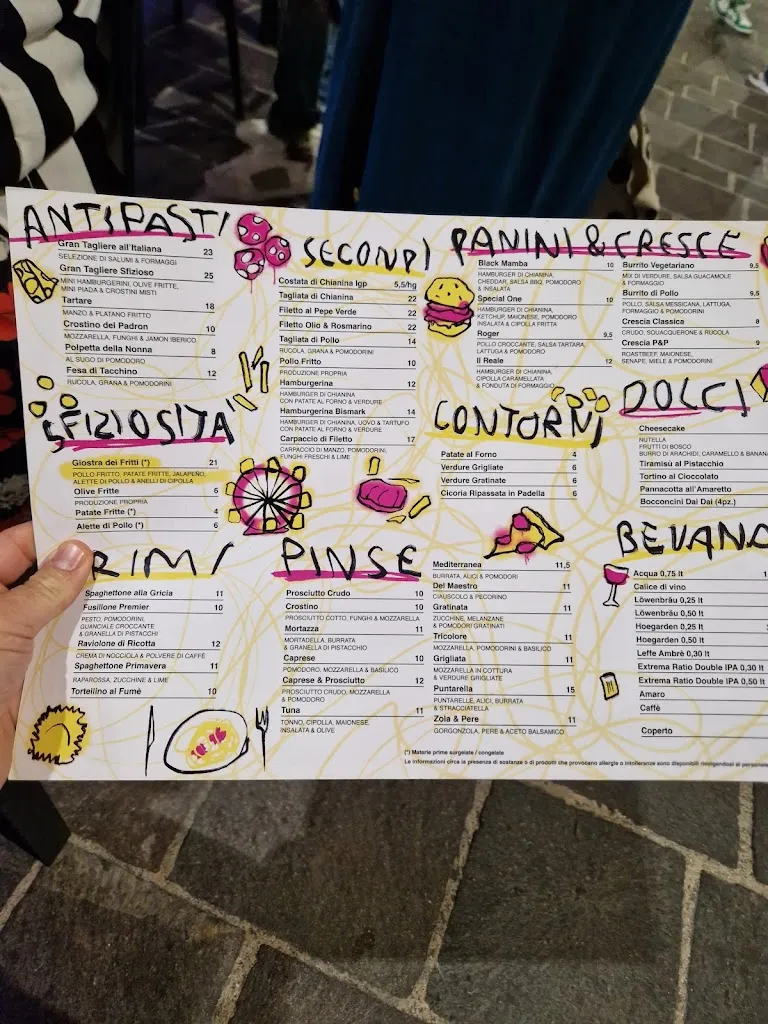 ANTIPASTI
Gran Tagliere all'Italiana 23
SELEZIONE DI SALUMI & FORMAGGI
Gran Tagliere Sfizioso 25
MINI HAMBURGERINI, OLIVE FRITTE,
MINI PIADA & CROSTINI MISTI
Tartare 18
MANZO & PLATANO FRITTO
Crostino del Padron 10
MOZZARELLA, FUNGHI & JAMON IBERICO
Polpetta della Nonna 8
AL SUGO DI POMODORO
Fesa di Tacchino 12
RUCOLA, GRANA & POMODORINI
SFIZIOSITA'
Giostra dei Fritti (*) 21
POLLO FRITTO, PATATE FRITTE, JALAPEÑO,
ALETTE DI POLLO & ANELLI DI CIPOLLA
Olive Fritte 6
PRODUZIONE PROPRIA
Patate Fritte (*) 4
Alette di Pollo (*) 6
PRIMI
Spaghettone alla Gricia 11
Fusillone Premier 10
PESTO, POMODORINI,
GUANCIALE CROCCANTE
& GRANELLA DI PISTACCHI
Raviolone di Ricotta 12
CREMA DI NOCCIOLA & POLVERE DI CAFFÈ
Spaghettone Primavera 11
RAPAROSSA, ZUCCHINE & LIME
Tortellino al Fumé 10
SECONDI
Costata di Chianina Igp 5,5/hg
Tagliata di Chianina 22
Filetto al Pepe Verde 22
Filetto Olio & Rosmarino 22
Tagliata di Pollo 14
RUCOLA, GRANA & POMODORINI
Pollo Fritto 10
PRODUZIONE PROPRIA
Hamburgerina 12
HAMBURGER DI CHIANINA
CON PATATE AL FORNO & VERDURE
Hamburgerina Bismark 14
HAMBURGER DI CHIANINA, UOVO & TARTUFO
CON PATATE AL FORNO & VERDURE
Carpaccio di Filetto 17
CARPACCIO DI MANZO, POMODORINI,
FUNGHI FRESCHI & LIME
PINSE
Prosciutto Crudo 10
Crostino 10
PROSCIUTTO COTTO, FUNGHI & MOZZARELLA
Mortazza 11
MORTADELLA, BURRATA
& GRANELLA DI PISTACCHIO
Caprese 10
POMODORO, MOZZARELLA & BASILICO
Caprese & Prosciutto 12
PROSCIUTTO CRUDO, MOZZARELLA
& POMODORO
Tuna 11
TONNO, CIPOLLA, MAIONESE,
INSALATA & OLIVE
Mediterranea 11,5
BURRATA, ALICI & POMODORI
Del Maestro 11
CIAUSCOLO & PECORINO
Gratinata 11
ZUCCHINE, MELANZANE
& POMODORI GRATINATI
Tricolore 11
MOZZARELLA, POMODORINI & BASILICO
Grigliata 11
MOZZARELLA IN COTTURA
& VERDURE GRIGLIATE
Puntarella 15
PUNTARELLE, ALICI, BURRATA
& STRACCIATELLA
Zola & Pere 11
GORGONZOLA, PERE & ACETO BALSAMICO
PANINI & CRESCE
Black Mamba 10
HAMBURGER DI CHIANINA,
CHEDDAR, SALSA BBQ, POMODORO
& INSALATA
Special One 10
HAMBURGER DI CHIANINA,
KETCHUP, MAIONESE, POMODORO
INSALATA & CIPOLLA FRITTA
Roger 9,5
POLLO CROCCANTE, SALSA TARTARA,
LATTUGA & POMODORO
Il Reale 12
HAMBURGER DI CHIANINA,
CIPOLLA CARAMELLATA
& FONDUTA DI FORMAGGIO
Burrito Vegetariano 9,5
MIX DI VERDURE, SALSA GUACAMOLE
& FORMAGGIO
Burrito di Pollo 9,5
POLLO, SALSA MESSICANA, LATTUGA,
FORMAGGIO & POMODORINI
Crescia Classica 8
CRUDO, SQUACQUERONE & RUGOLA
Crescia P&P 9
ROASTBEEF, MAIONESE,
SENAPE, MIELE & POMODORINI
CONTORNI
Patate al Forno 4
Verdure Grigliate 6
Verdure Gratinate 6
Cicoria Ripassata in Padella 6
DOLCI
Cheesecake
NUTELLA
FRUTTI DI BOSCO
BURRO DI ARACHIDI, CARAMELLO & BANANA
Tiramisù al Pistacchio
Tortino al Cioccolato
Pannacotta all'Amaretto
Bocconcini Dai Dai (4pz.)
BEVAND
Acqua 0,75 lt 1
Calice di vino
Löwenbräu 0,25 lt
Löwenbräu 0,50 lt
Hoegarden 0,25 lt
Hoegarden 0,50 lt
Leffe Ambrè 0,30 lt
Extrema Ratio Double IPA 0,30 lt
Extrema Ratio Double IPA 0,50 lt
Amaro
Caffè
Coperto
(*) Materie prime surgelate / congelate
Le informazioni circa la presenza di sostanze o di prodotti che provocano allergie o intolleranze sono disponibili rivolgendosi al personale